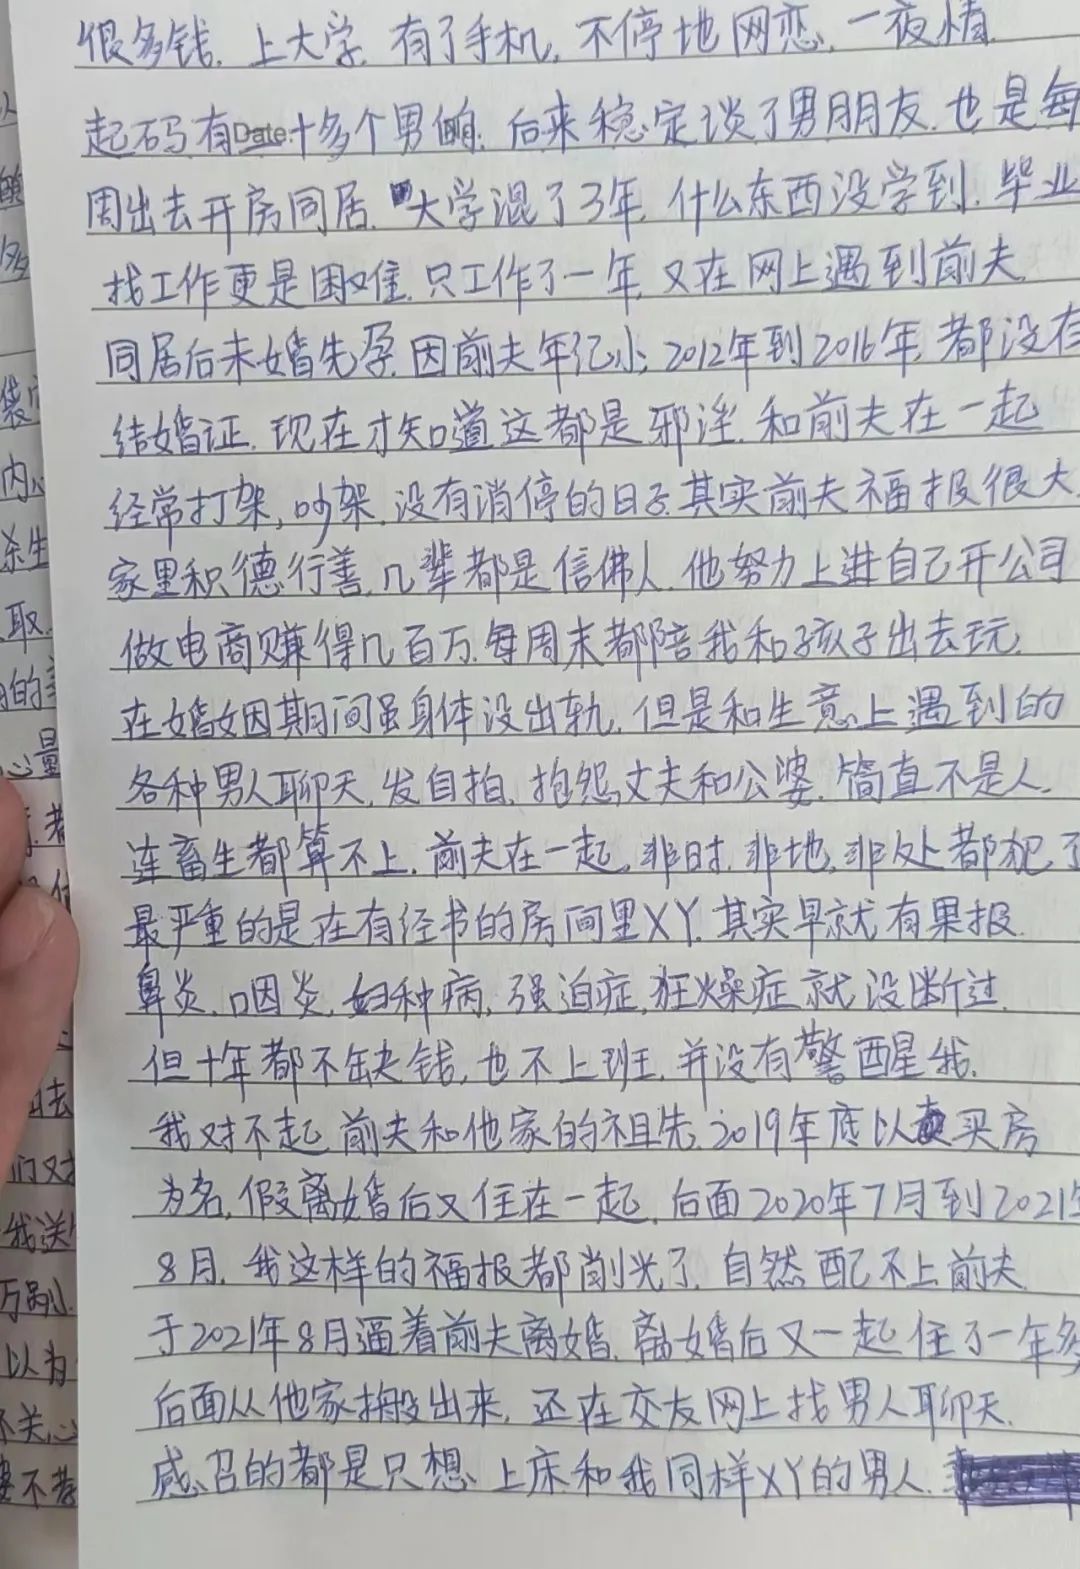 很多钱.上大学.有了手机,不停地网恋,一夜情.
起码有Date十多个男的.后来稳定谈了男朋友.也是每
周出去开房同居.大学混了3年.什么东西没学到.毕业
找工作更是困难.只工作了一年.又在网上遇到前夫.
同居后未婚先孕.因前夫年纪小,2012年到2016年.都没有
结婚证.现在才知道这都是邪淫.和前夫在一起
经常打架,吵架.没有消停的日子.其实前夫福报很大.
家里积德行善.几辈都是信佛人.他努力上进自己开公司
做电商赚得几百万.每周末都陪我和孩子出去玩.
在婚姻期间虽身体没出轨.但是和生意上遇到的
各种男人聊天.发自拍.抱怨丈夫和公婆.简直不是人.
连畜生都算不上.前夫在一起.非时.非地.非处都犯了
最严重的是在有经书的房间里XY.其实早就有果报.
鼻炎.咽炎.妇种病,强迫症.狂燥症就没断过.
但十年都不缺钱,也不上班.并没有警醒我.
我对不起前夫和他家的祖先.2019年底以买房
为名,假离婚后又住在一起.后面2020年7月到2021年
8月.我这样的福报都削光了.自然配不上前夫.
于2021年8月逼着前夫离婚.离婚后又一起住了一年多
后面从他家搬出来.还在交友网上找男人聊天.
感召的都是只想上床和我同样XY的男人.